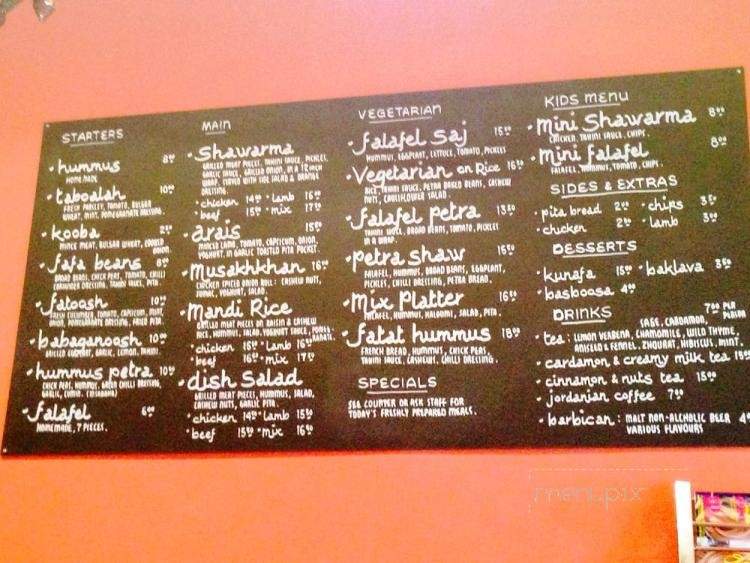 STARTERS
hummus 8⁰⁰
HOME MADE
taboulah 10⁰⁰
FRESH PARSLEY, TOMATO, BULGAR
WHEAT, MINT, POMEGRANATE DRESSING.
kooba 2⁵⁰
MINCE MEAT, BULGAR WHEAT, COOKED
fafa beans 8⁰⁰
BROAD BEANS, CHICK PEAS, TOMATO, CHILLI
CORIANDER DRESSING, TAHINI SAUCE, PITA
fatoosh 10⁰⁰
FRESH CUCUMBER, TOMATO, CAPSICUM, MINT,
ONION, POMEGRANATE DRESSING, FRIED PITA.
babaganoosh 10⁰⁰
GRILLED EGGPLANT, GARLIC, LEMON, TAHINI
hummus petra 10⁰⁰
CHICK PEAS, HUMMUS, GREEN CHILLI DRESSING,
GARLIC, CUMIN.
falafel 6⁰⁰
HOMEMADE, 7 PIECES.
MAIN
Shawarma
GRILLED MEAT PIECES, TAHINI SAUCE, PICKLES,
GARLIC SAUCE, GRILLED ONION, IN A 12 INCH
WRAP, SERVED WITH SIDE SALAD &
DRESSING
chicken 14⁵⁰ lamb 16⁵⁰
beef 15⁵⁰ mix 17⁵⁰
arais 15⁰⁰
MINCED LAMB, TOMATO, CAPSICUM, ONION,
YOGHURT, IN GARLIC TOASTED PITA POCKET.
Musakhkhan 16⁰⁰
CHICKEN SPICED ONION ROLL: CASHEW NUTS,
SUMAC, YOGHURT, SALAD.
Mandi Rice
GRILLED MEAT PIECES ON RAISIN & CASHEW
RICE, HUMMUS, SALAD, YOGHURT SAUCE, POMEG-
RANATE.
chicken 15⁵⁰ lamb 16⁵⁰
beef 16⁵⁰ mix 17⁵⁰
dish Salad
GRILLED MEAT PIECES, HUMMUS, SALAD,
CASHEW NUTS, GARLIC PITA.
chicken 14⁵⁰ lamb 15⁵⁰
beef 15⁵⁰ mix 16⁵⁰
VEGETARIAN
falafel Saj 15⁰⁰
HUMMUS, EGGPLANT, LETTUCE, TOMATO, PICKLES
Vegetarian on Rice 16⁵⁰
RICE, TAHINI SAUCE, PETRA BAKED BEANS, CASHEW
NUTS, CAULIFLOWER SALAD.
falafel petra 13⁵⁰
TAHINI SAUCE, BROAD BEANS, TOMATO, PICKLES
IN A WRAP.
petra Shaw 15⁰⁰
FALAFEL, HUMMUS, BROAD BEANS, EGGPLANT,
PICKLES, CHILLI DRESSING, PETRA BREAD.
Mix Platter 16⁵⁰
FALAFEL, HUMMUS, HALOUMI, SALAD, PITA.
fatat hummus 18⁰⁰
FRENCH BREAD, HUMMUS, CHICK PEAS,
TAHINI SAUCE, CASHEWS, CHILLI DRESSING.
SPECIALS
SEE COUNTER OR ASK STAFF FOR
TODAY'S FRESHLY PREPARED MEALS.
KIDS MENU
Mini Shawarma 8⁰⁰
CHICKEN, TAHINI SAUCE, CHIPS.
Mini falafel 8⁰⁰
FALAFEL, HUMMUS, TOMATO, CHIPS.
SIDES & EXTRAS
pita bread 2⁰⁰ chips 3⁵⁰
chicken 2⁵⁰ lamb 3⁰⁰
DESSERTS
kunafa 15⁰⁰ baklava 3⁵⁰
basboosa 4⁰⁰
DRINKS 7⁰⁰ PER
SAGE, CARDAMON,
tea: LEMON VERBENA, CHAMOMILE, WILD THYME,
ANISEED & FENNEL, ZHOURAT, HIBISCUS, MINT.
cardamon & creamy milk tea
cinnamon & nuts tea 15⁰⁰
jordanian coffee 7⁰⁰
barbican: MALT NON-ALCHOLIC BEER
VARIOUS FLAVOURS
menupix